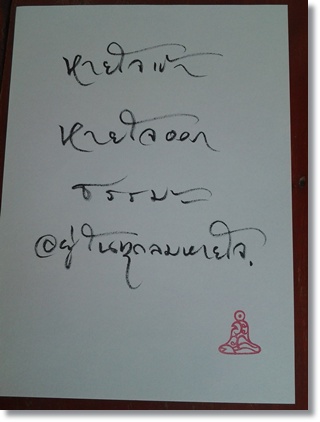 หายใจเข้า
หายใจออก
ธรรมะ
อยู่ในทุกลมหายใจ.